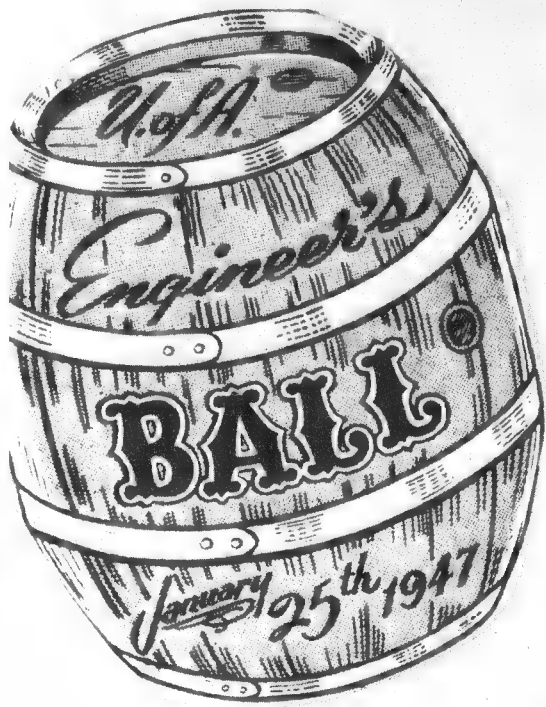 U. of A.
Engineer's
BALL
January 25th 1947